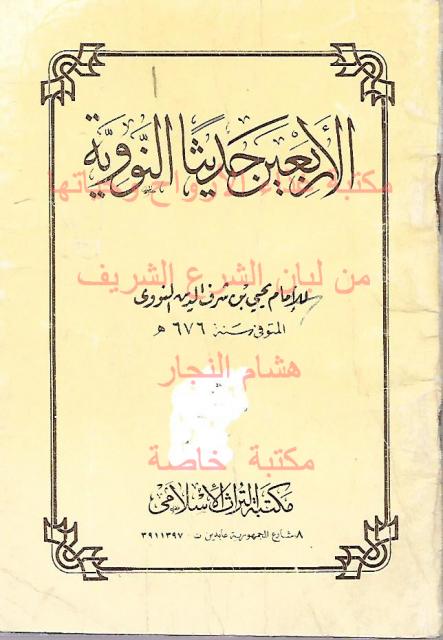 الأربعين حديثا النووية
مكتبة غذاء الأرواح وحياتها
من لبان الشرع الشريف
للإمام يحيى بن شرف الدين النووى
المتوفى سنة ٦٧٦ هـ
هشام النجار
مكتبة خاصة
مكتبة التراث الإسلامى
٨ شارع الجمهورية عابدين ت ٣٩١١٣٩٧